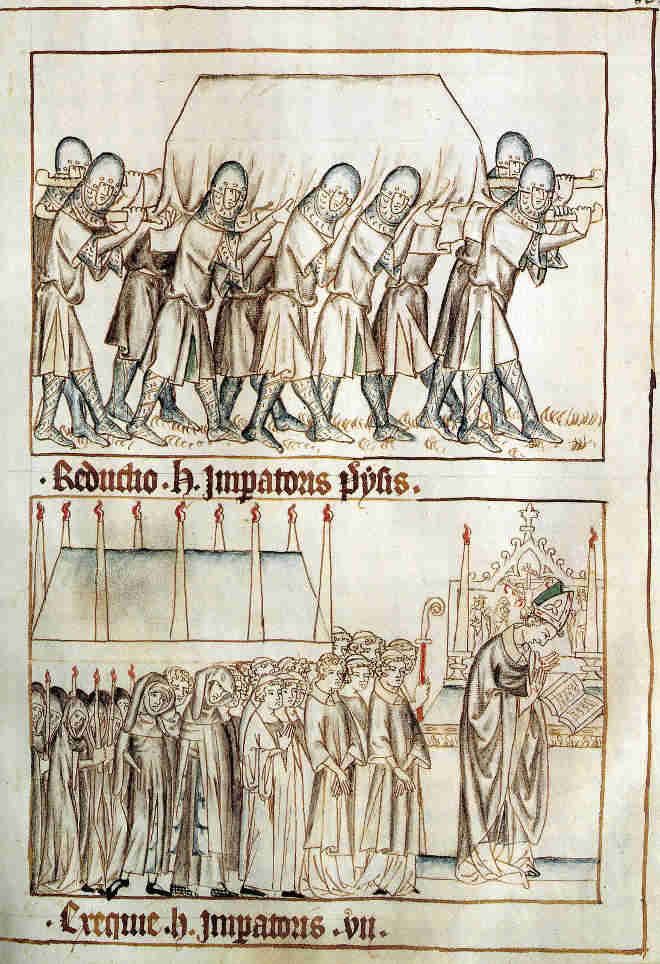 · Reductio . h . Imp̱atoris pysis .
· Exequie . h . Imp̱atoris . vii .